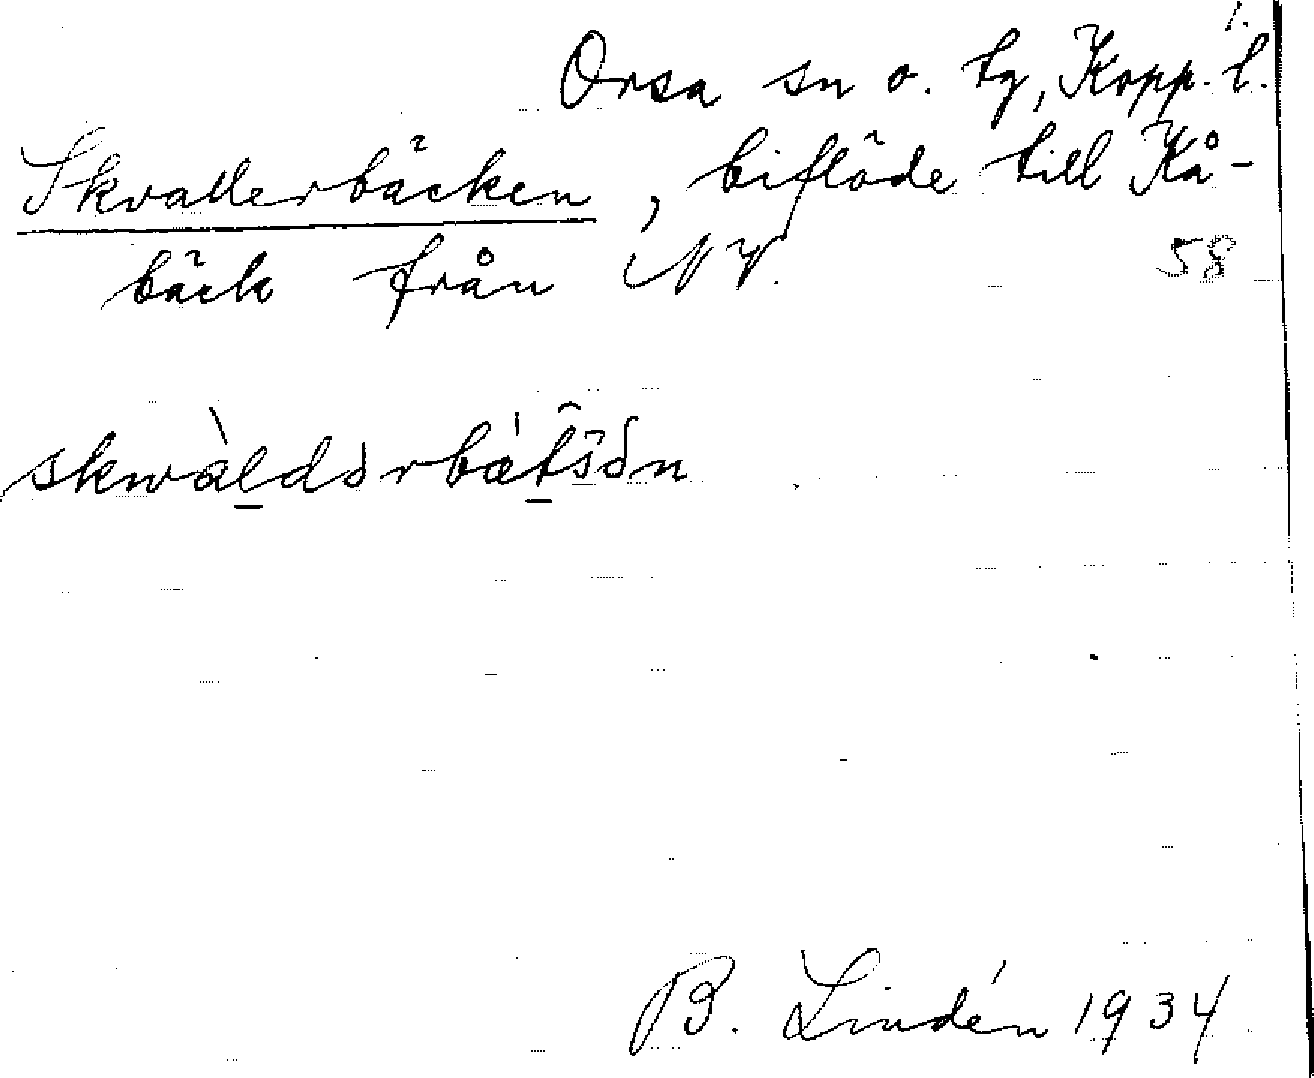 1.
Orsa sn o. tg, Kopp. l.
Skvallerbäcken, biflöde till Kå-
bäck från NV. 58
B. Lindén 1934